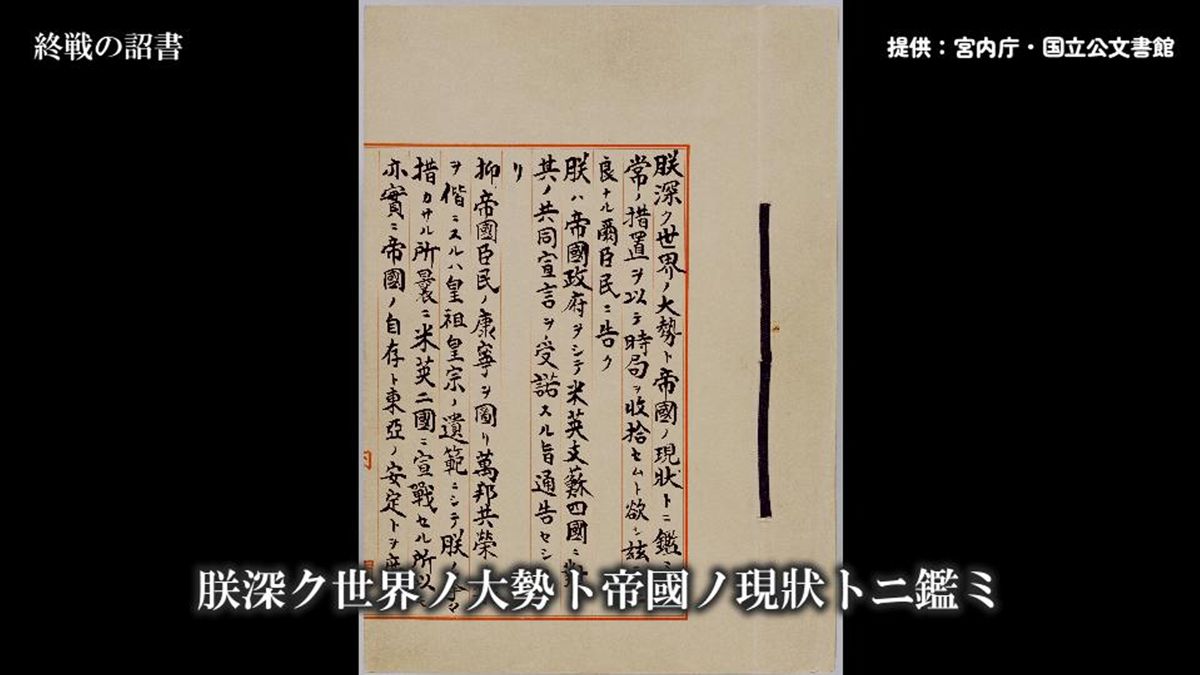 終戦の詔書
提供：宮内庁・国立公文書館
朕深ク世界ノ大勢ト帝國ノ現狀トニ鑑ミ
常ノ措置ヲ以テ時局ヲ收拾セムト欲シ茲
良ナル爾臣民ニ告ク
朕ハ帝國政府ヲシテ米英支蘇四國ニ對
其ノ共同宣言ヲ受諾スル旨通告セシ
リ
抑帝國臣民ノ康寧ヲ圖リ萬邦共榮
ヲ偕ニスルハ皇祖皇宗ノ遺範ニシテ朕ノ拳々
措カサル所曩ニ米英二國ニ宣戰セル所以
亦實ニ帝國ノ自存ト東亞ノ安定トヲ庶
朕深ク世界ノ大勢ト帝國ノ現狀トニ鑑ミ